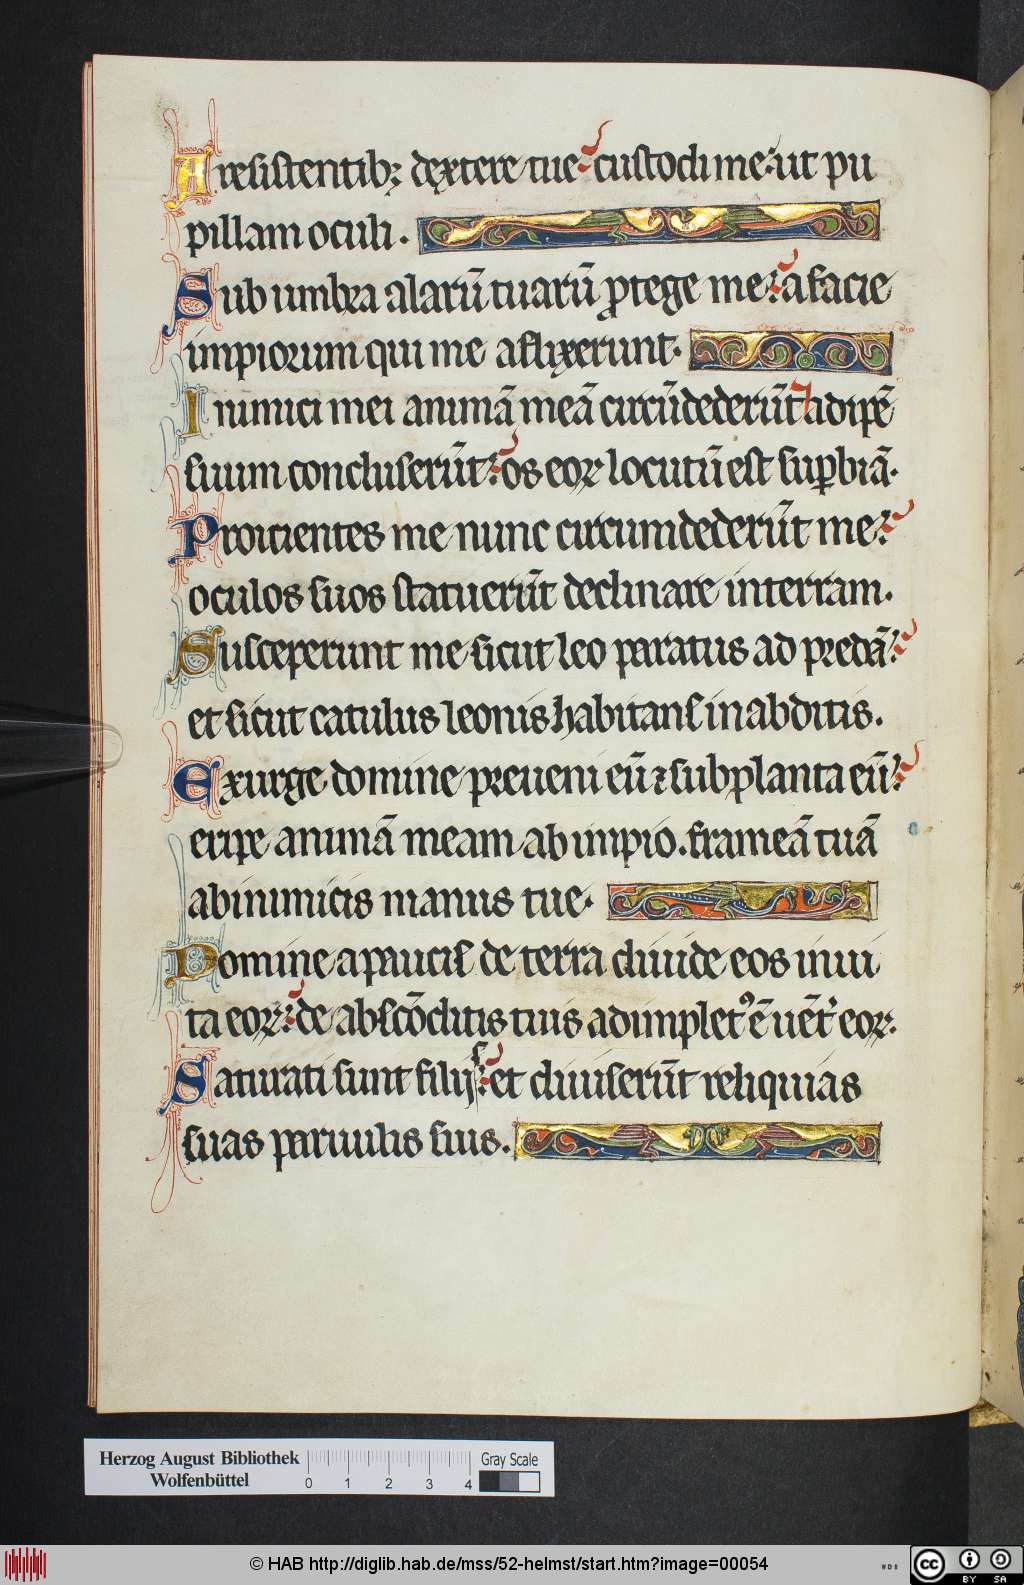 A resistentibꝫ dęxtere tue custodi me. ut pu
pillam oculi.
Sub umbra alarū tuarū ꝓtege me: a facie
impiorum qui me aflixerunt.
Inimici mei animā meā circūdederūt adipē
suum concluserūt: os eoꝝ locutū est suꝑbiā.
Proicientes me nunc circumdederūt me:
oculos suos statuerūt declinare in terram.
Susceperunt me sicut leo paratus ad predā:
et sicut catulus leonis habitans in abditis.
Exurge domine preueni eū ⁊ subplanta eū:
eripe animā meam ab impio. frameā tuā
ab inimicis manus tue.
Domine a paucis de terra diuide eos in ui
ta eoꝝ: de abscōditis tuis adimplet᷒ ē uēt᷑ eoꝝ.
Saturati sunt filijs: et diuiserūt reliquias
suas paruulis suis.
Herzog August Bibliothek
Wolfenbüttel
0 1 2 3 4
Gray Scale
© HAB http://diglib.hab.de/mss/52-helmst/start.htm?image=00054
WDB
cc BY SA